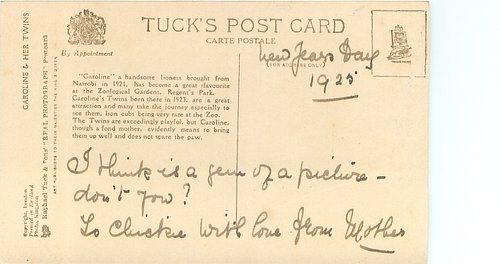 TUCK'S POST CARD
CARTE POSTALE
By Appointment
(FOR ADDRESS ONLY)
New Years Day
1925
CAROLINE & HER TWINS
Raphael Tuck & Sons' "REAL PHOTOGRAPH" Postcard
Copyright, London
Printed in England
"Caroline" a handsome lioness brought from
Nairobi in 1921, has become a great favourite
at the Zoological Gardens, Regent's Park.
Caroline's Twins born there in 1923, are a great
attraction and many take the journey especially to
see them, lion cubs being very rare at the Zoo.
The Twins are exceedingly playful, but Caroline,
though a fond mother, evidently means to bring
them up well and does not spare the paw.
I think is a gem of a picture -
don't you?
To Chickie with love from Mother